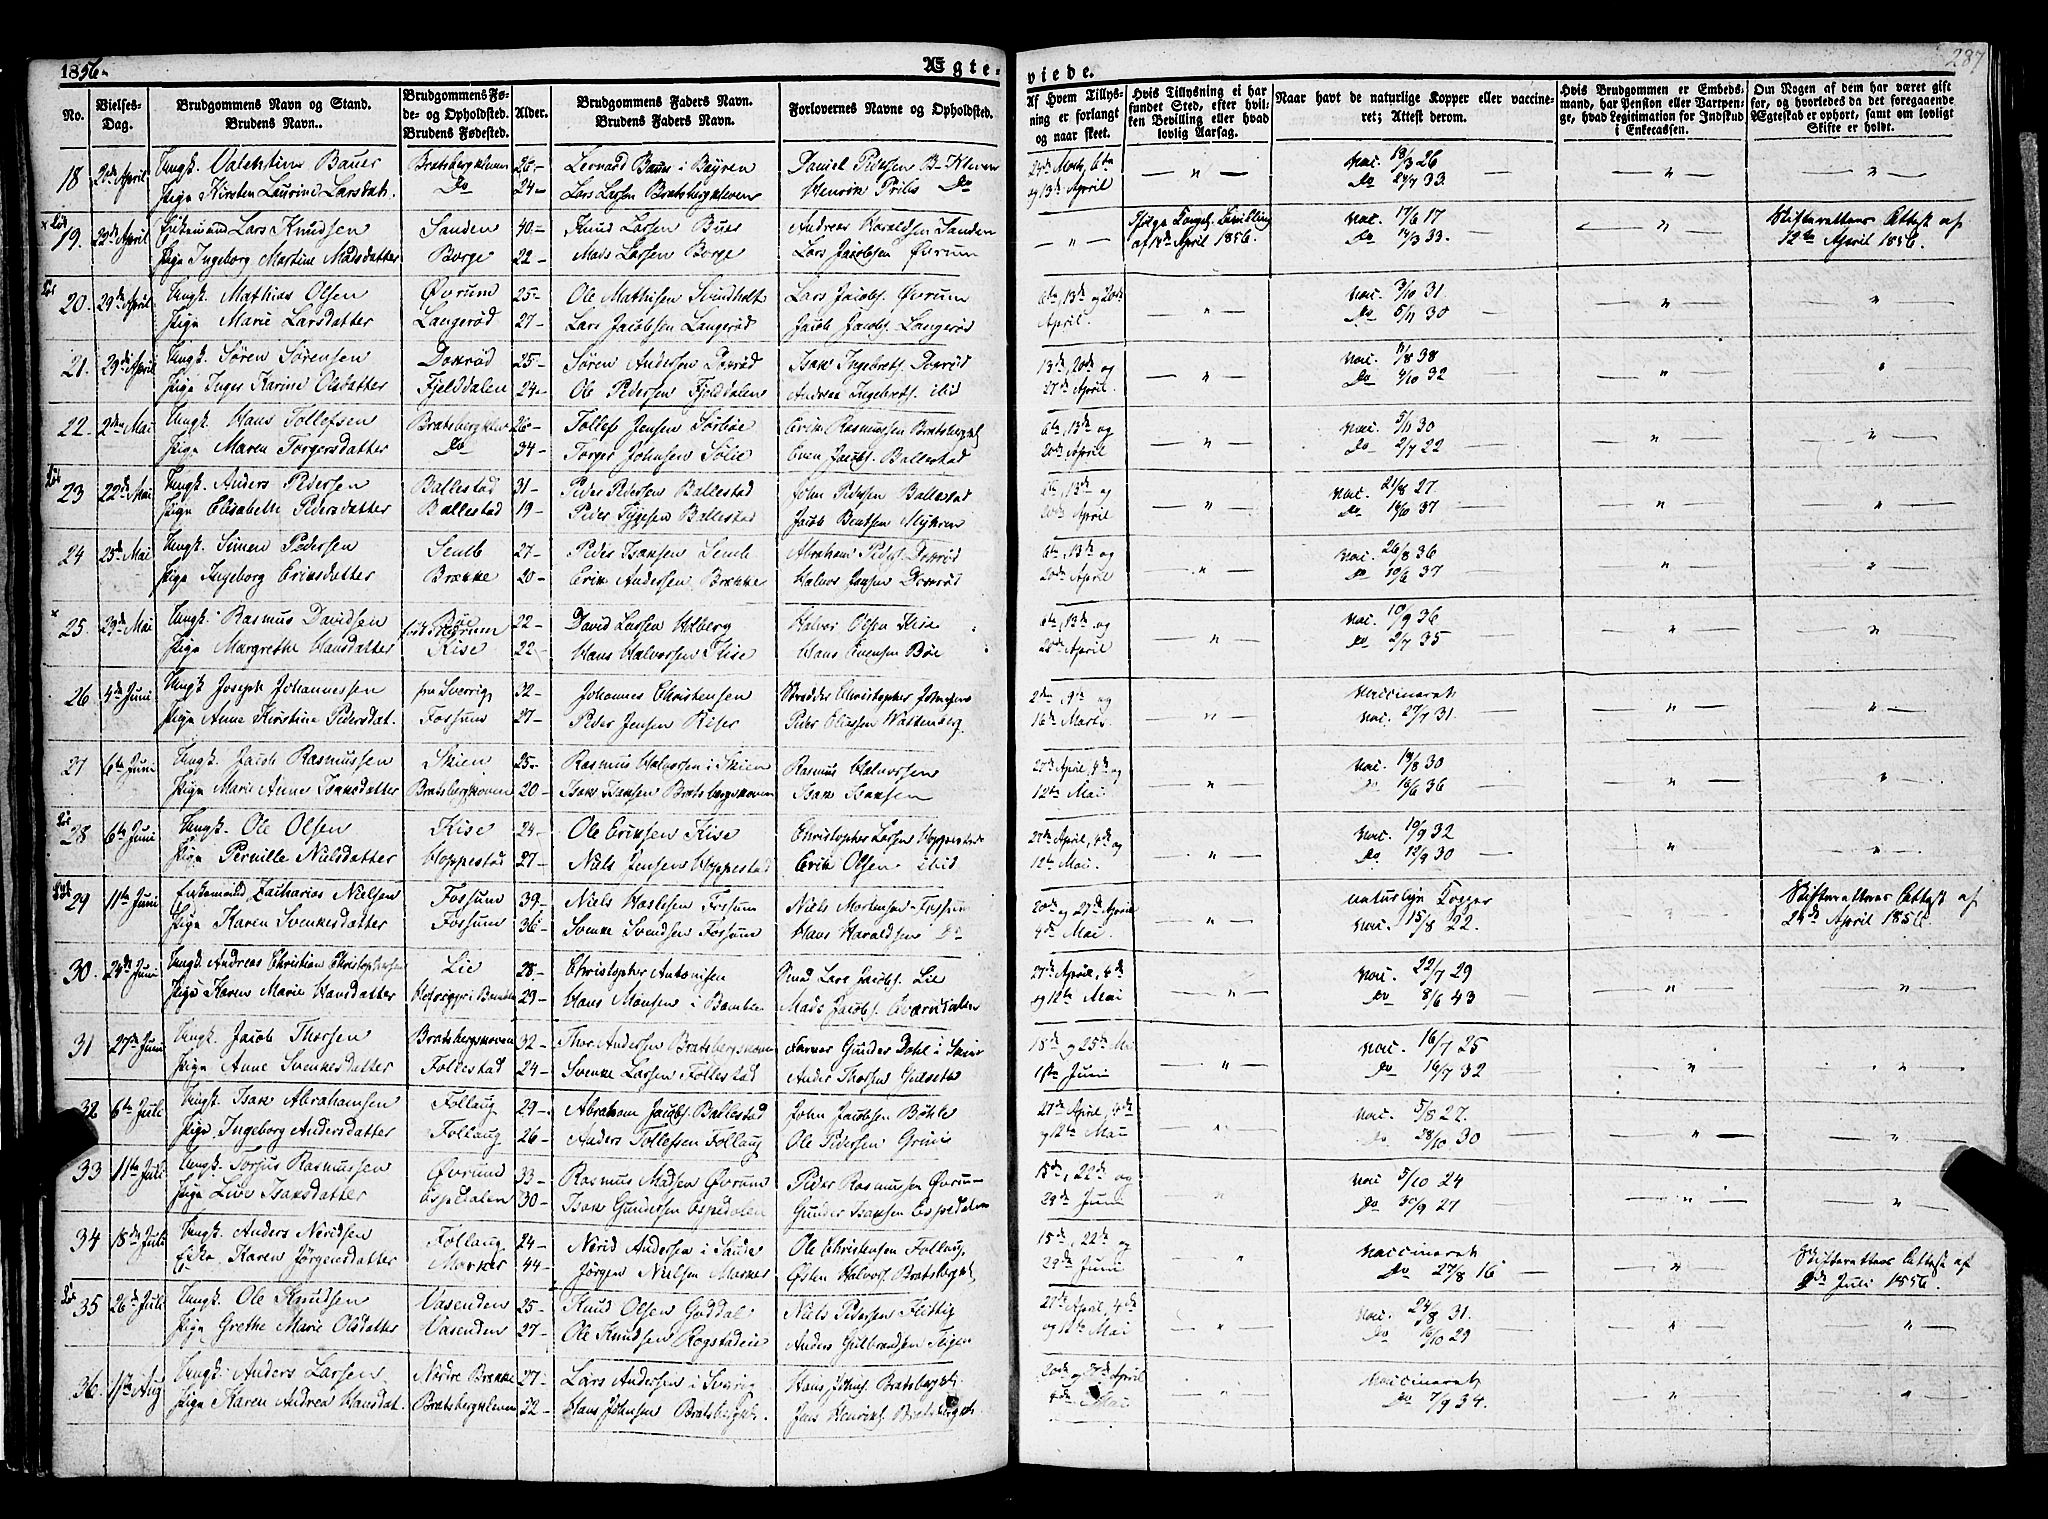 1856. Ægte- viede. 287
No. Vielses-Dag. Brudgommens Navn og Stand. Brudens Navn. Brudgommens Føde- og Opholdsted. Brudens Fødested. Alder. Brudgommens Faders Navn. Brudens Faders Navn. Forlovernes Navne og Opholdsted. Af Hvem Tillysning er forlangt og naar skeet. Hvis Tillysning ei har fundet Sted, efter hvilken Bevilling eller hvad lovlig Aarsag. Naar havt de naturlige Kopper eller vaccineret; Attest derom. Hvis Brudgommen er Embedsmand, har Pension eller Vartpenge, hvad Legitimation for Indskud i Enkecassen. Om Nogen af dem har været gift før, og hvorledes da det foregaaende Ægteskab er ophørt, samt om lovligt Skifte er holdt.
18 April Ungk. Valentin Bauer Bratsbergkleven 26 Bauer i Bayren Daniel Pedersen B. Kleven 24de 6te vac. 18/3 26
Pige Kirsten Laurine Larsdat. Do 24 Lars Larsen Bratsbergkleven Henrik Do og 13de April Do 33
19. 29de April Enkemand Lars Knudsen Sanden 40 Knud Larsen Andreas Haraldsen Sanden Bevilling vac. 17/6 17 Skifterettens Attest af
Pige Ingeborg Martine Madsdatter Borge 22 Mads Larsen Borge Lars Jacobsen Øvrum af April 1856. Do 14/3 33 12te April 1856.
20. 29de April Ungk. Mathias Olsen Øvrum 25 Ole Mathisen Lars Jacobs. Øvrum 6te, 13de og 20de vac. 31
Pige Marie Larsdatter Langerød 27 Lars Jacobsen Langerød Jacob Jacobs. Langerød April. Do 5/11 30
21. 29de April Ungk. Søren Sørensen Doxrød 25 Søren Andersen Doxrød Isak Ingebrets. Doxrød 13de, 20de og vac. 38
Pige Inger Karine Olsdatter Fjelddalen 24 Ole Pedersen Fjelddalen Andreas Ingebrets. 27de April. Do 32
22. 2den Mai Ungk. Hans Tollefsen Bratsbergklev 26 Tollef Jensen Sørbøe Erik Rasmussen Bratsbergkl 6te, 13de og vac. 5/11 30
Pige Maren Torgersdatter Do 34 Torger Johnsen Sølie Even Jacobs. Ballestad 20de April Do 2/7 22
23 22de Mai Ungk. Anders Pedersen Ballestad 31 Peder Pedersen Ballestad John Pedersen Ballestad 6te, 13de og vac. 21/8 27
Pige Elisabeth Pedersdatter Ballestad 19 Peder Ballestad Jacob Bentsen Myhren 20de April Do 37
24 25de Mai Ungk. Simen Pedersen Semb 27 Peder Isaksen Semb Abraham Peders. Doxrød 6te, 13de og vac. 26/8 36
Pige Ingeborg Eriksdatter Brække 20 Erik Andersen Brække Halvor Jansen Doxrød 20de April Do 10/6 37
25. 29de Mai Ungk. Rasmus Davidsen Bøe 22 David Larsen Holberg Halvor Olsen Kise 6te, 13de og vac. 10/9 36
Pige Margrethe Hansdatter Kise 22 Hans Halvorsen Kise Hans Evensen Bøe April Do 2/7 35
26 4de Juni Ungk Joseph Johannessen fra Sverrig 32 Johannes Christensen Skrædder Christopher Johnsen 2de, 9de og vaccinerat
Pige Anne Kirstine Pedersdat. Fossum 27 Peder Jensen Riser Peder Wattenberg 16de Marts. vac. 27/7 31.
27 6te Juni Ungk. Jacob Rasmussen Skien 25 Rasmus Halvorsen i Skien Rasmus Halvorsen 27de April, 4de og vac. 19/8 30
Pige Marie Anne Isaksdatter Bratsbergkoven 20 Isak Isaksen Bratsbergkoven Isak Isaksen 12te Mai Do 16/6 36
28 6te Juni Ungk. Ole Olsen Kise 24 Ole Eriksen Kise Christopher Larsen Hoppestad 27de April, 4de og vac. 10/9 32
Pige Pernille Nielsdatter Hoppestad 27 Niels Jensen Hoppestad Erik Olsen 12te Mai. Do 12/9 30
29 11te Juni Enkemand Zacharias Nielsen Fossum 39 Niels Fossum Niels Mortensen Fossum 20de og 27de April naturlige Kopper Skifterettens Attest af
Pige Karen Svenkesdatter Fossum 36 Svenke Svendsen Fossum Hans Haraldsen Do 4de Mai. vac. 15/8 22. April 1856
30. 24de Juni Ungk. Andreas Christian Christophersen Lie 28 Christopher Antonisen Lars Jacobs. Lie 27de April, 4de vac. 22/7 29
Pige Karen Marie Hansdatter i Bamble 29 Hans Monsen i Bamble Mads Jacobs. og 12te Mai Do 8/6 43
31 27de Juni Ungk. Jacob Thorsen Bratsbergkoven 32 Thor Andersen Bratsbergkoven Farver Gunder Dahl i Skien 18de og 25de Mai vac. 16/7 25
Pige Anne Svenkesdatter Follestad 24 Svenke Larsen Follestad Anders Thorsen 1ste Juni Do 16/7 32
32 6te Juli Ungk. Isak Abrahamsen Follaug 29 Abraham Jacobs. Ballestad John Jacobsen Bøhle 27de April, 4de vac. 5/8 27.
Pige Ingeborg Andersdatter Follaug 26 Anders Tollefsen Follaug Ole Pedersen Grinie og 12te Mai Do 28/10 30
33 11te Juli Ungk. Torjus Rasmussen Øvrum 33 Rasmus Madsen Øvrum Peder Rasmussen Øvrum 15de, 22de og vac 5/10 24
Pige Live Isaksdatter Espedalen 30 Isak Gundersen Espedalen Gunder Isaksen Espedalen 29de Juni Do 30/9 27
34 18de Juli Ungk. Anders Neridsen Follaug 24 Nerid Andersen i Saude Ole Christensen Follaug. 15de, 22de og vaccinerat Skifterettens Attest af
Enke Karen Jørgensdatter Marker 44 Jørgen Nielsen Marker Østen Halvors. Bratsbergkl 29de Juni Do 27/8 16 Juli 1856.
35 26de Juli Ungk. Ole Knudsen Vasenden 25 Knud Olsen Goddal Niels Pedersen Flittig 27de April, 4de vac. 24/8 31.
Pige Grethe Marie Olsdatter Vasenden 27 Ole Knudsen Rogstadeie Anders Gulbrandsen Teigen og 12te Mai Do 29
36 11te Aug Ungk. Anders Larsen Nordre Brække 27 Lars Andersen i Sverig Hans Johns. Bratsbergkl 20de og 27de April vaccinerat
Pige Karen Andrea Hansdat. Bratsbergkleven 22 Hans Johnsen Bratsbergkl. Jens Henriks. Bratsbergkl. 4de Mai Do 7/9 34.